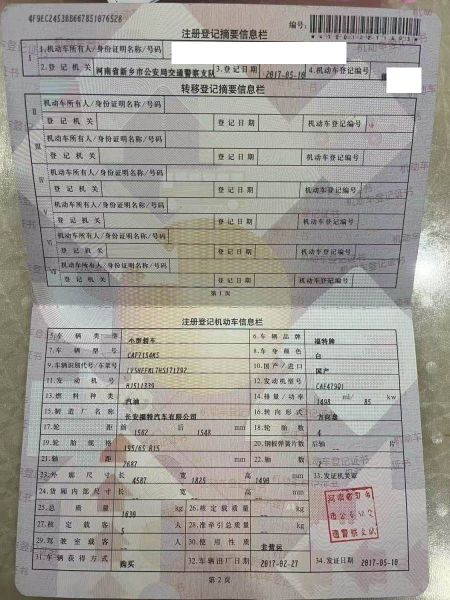 4F9EC2453BB667851076528
编号:
注册登记摘要信息栏
I 1.机动车所有人/身份证明名称/号码
2.登记机关 河南省新乡市公安局交通警察支队 3.登记日期 2017-05-10 4.机动车登记编号
转移登记摘要信息栏
II 机动车所有人/身份证明名称/号码
登记机关 登记日期 机动车登记编号
III 机动车所有人/身份证明名称/号码
登记机关 登记日期 机动车登记编号
IV 机动车所有人/身份证明名称/号码
登记机关 登记日期 机动车登记编号
V 机动车所有人/身份证明名称/号码
登记机关 登记日期 机动车登记编号
VI 机动车所有人/身份证明名称/号码
登记机关 登记日期 机动车登记编号
VII 机动车所有人/身份证明名称/号码
登记机关 登记日期 机动车登记编号
第1页
注册登记机动车信息栏
5.车辆类型 小型轿车 6.车辆品牌 福特牌
7.车辆型号 CAF7154M5 8.车身颜色 白
9.车辆识别代号/车架号 10.国产/进口 国产
11.发动机号 HJ511339 12.发动机型号 CAF479Q1
13.燃料种类 汽油 14.排量/功率 1498 ml/ 85 kw
15.制造厂名称 长安福特汽车有限公司 16.转向形式 方向盘
17.轮距 前 1562 后 1548 mm 18.轮胎数 4
19.轮胎规格 195/65 R15 20.钢板弹簧片数 后轴 片
21.轴距 2687 mm 22.轴数 2
23.外廓尺寸 长 4587 宽 1825 高 1490 mm 33.发证机关章
24.货厢内部尺寸 长 宽 高 mm
25.总质量 1630 kg 26.核定载质量 kg
27.核定载客 5 人 28.准牵引总质量 kg
29.驾驶室载客 人 30.使用性质 非营运
31.车辆获得方式 购买 32.车辆出厂日期 2017-02-27 34.发证日期 2017-05-10
第2页